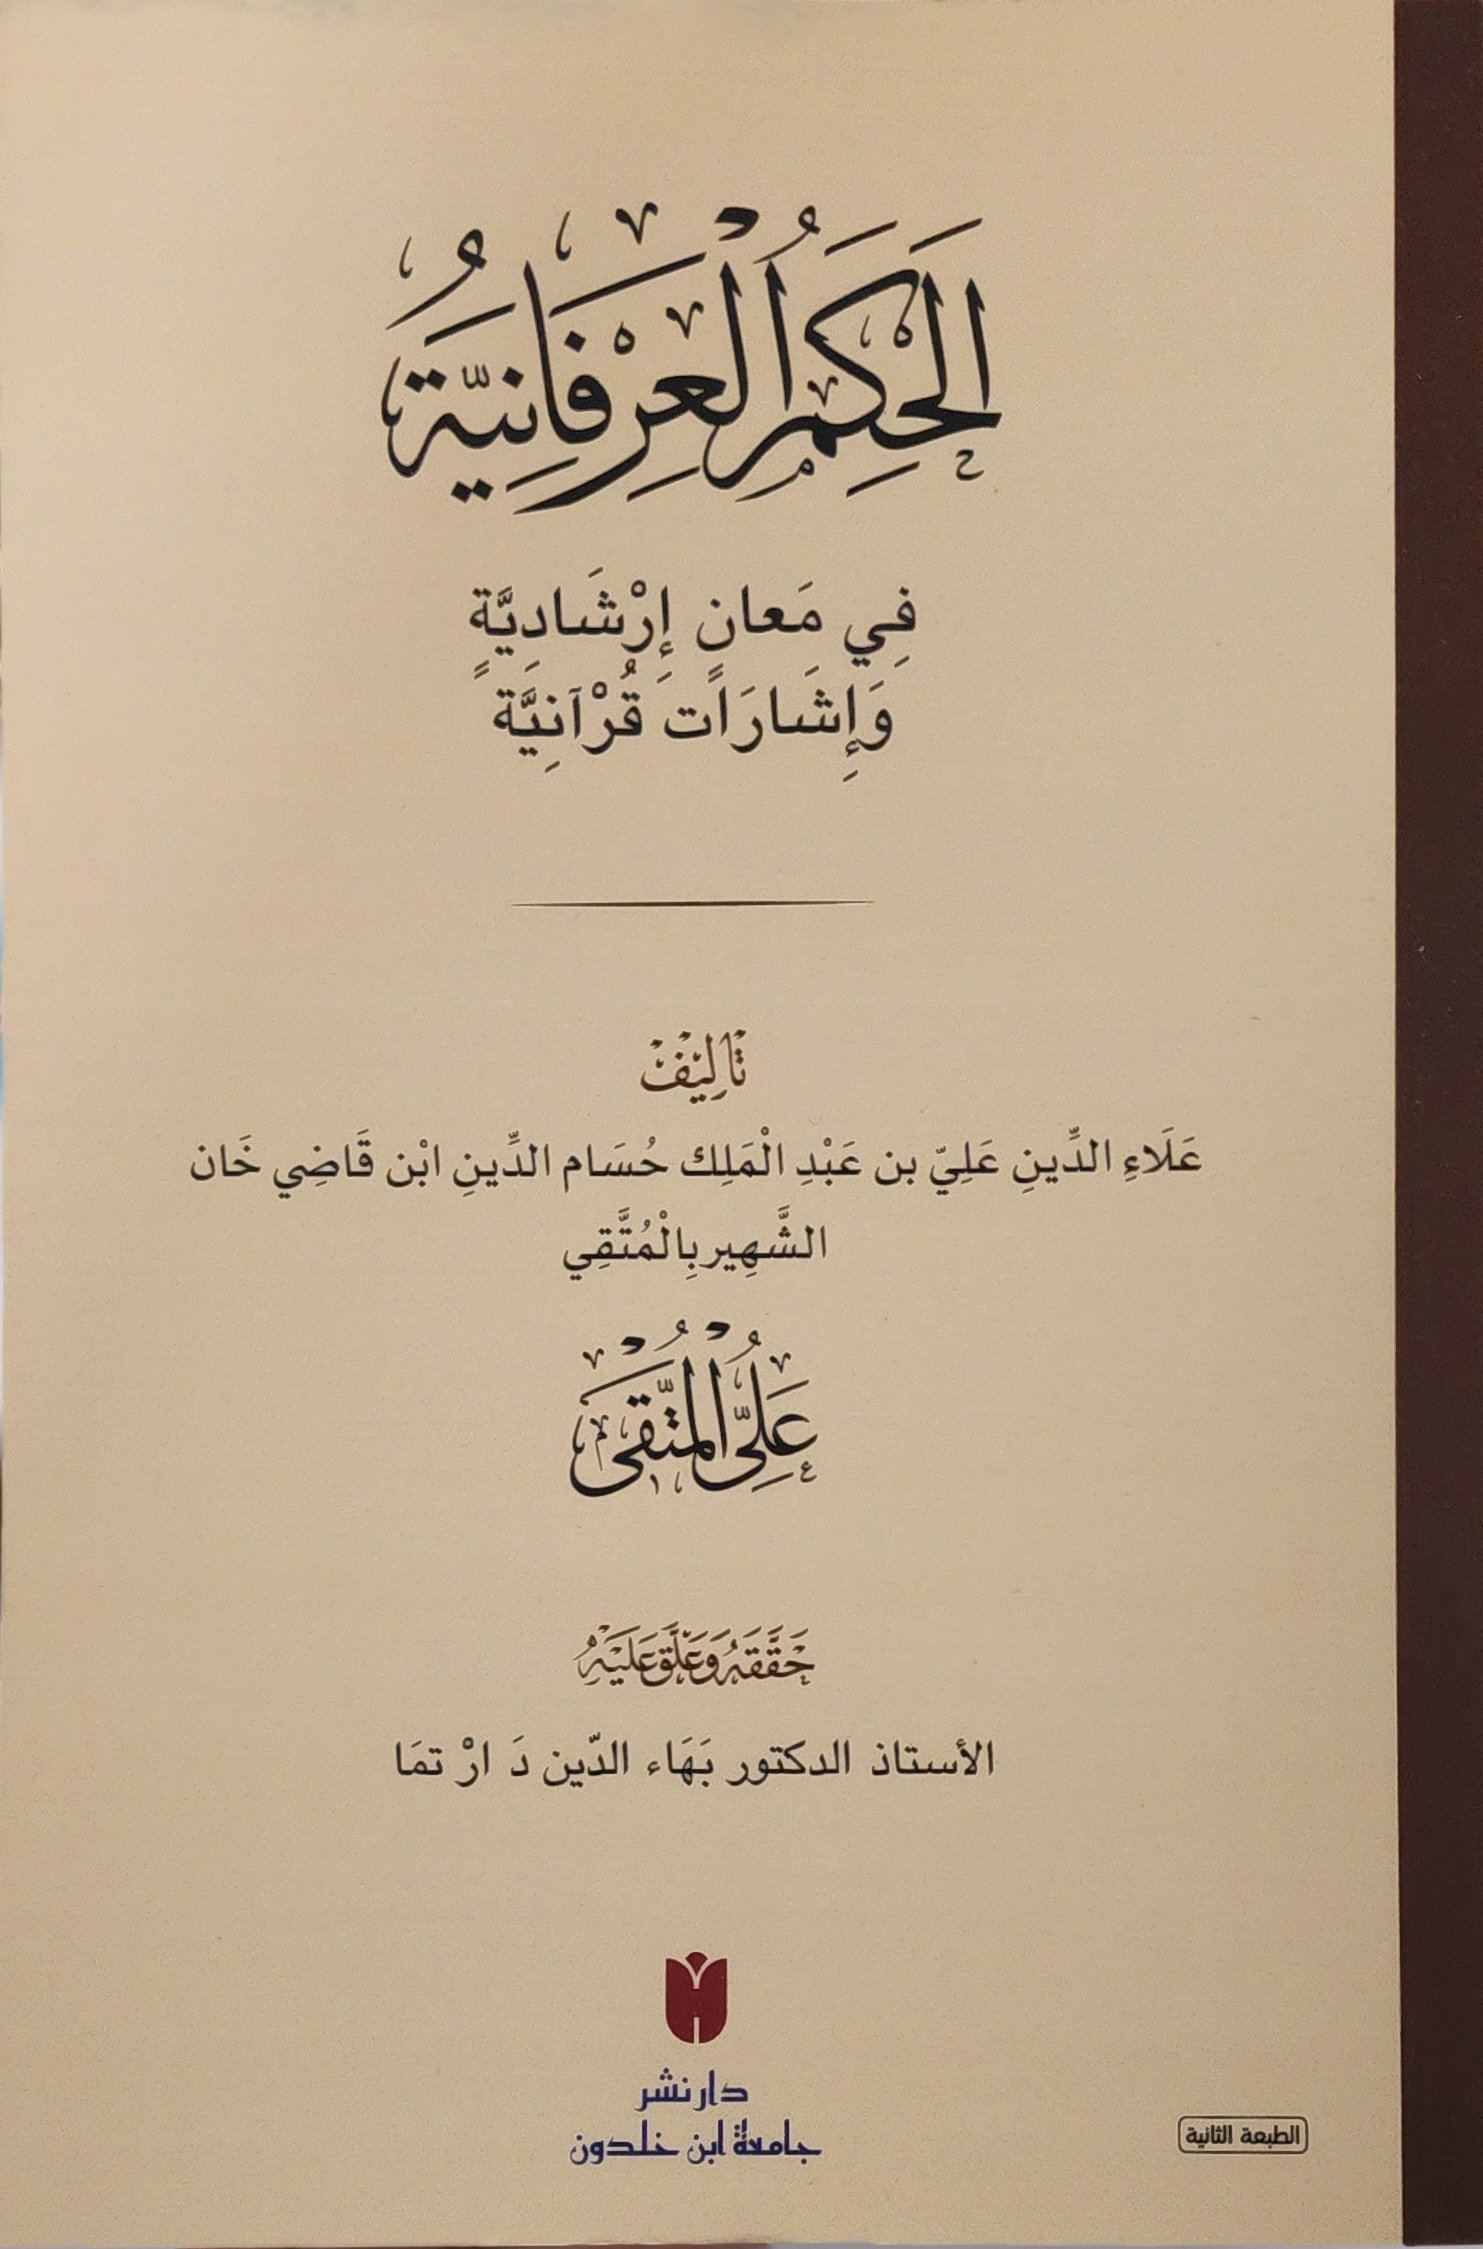 اَلْحِكَمُ الْعِرْفَانِيَّةُ
فِي مَعانٍ إِرْشَادِيَّةٍ
وَإِشَارَاتٍ قُرْآنِيَّةٍ
تَالِيْفْ
عَلَاءِ الدِّينِ عَلِيّ بن عَبْدِ الْمَلِك حُسَام الدِّينِ ابْن قَاضِي خَان
الشَّهِير بِالْمُتَّقِي
عَلِىُّ الْمُتَّقىٰ
حَقَّقَهُ وَعَلَّقَ عَلَيْهِ
الأستاذ الدكتور بَهَاء الدّين دَ ارْ تمَا
دار نشر
جامعة ابن خلدون
الطبعة الثانية